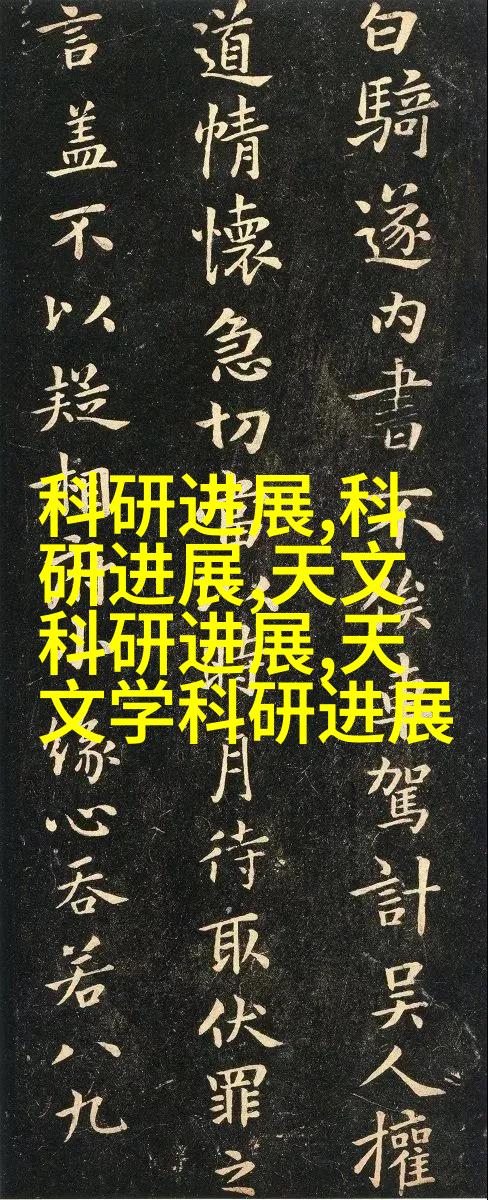 白騎遂内書不俟車駕計吴人權
道情懷急切當月待取伏罪之
言盖不以疑相緣心吞若八九
科研进展,科
研进展,天文
科研进展,天
文学科研进展